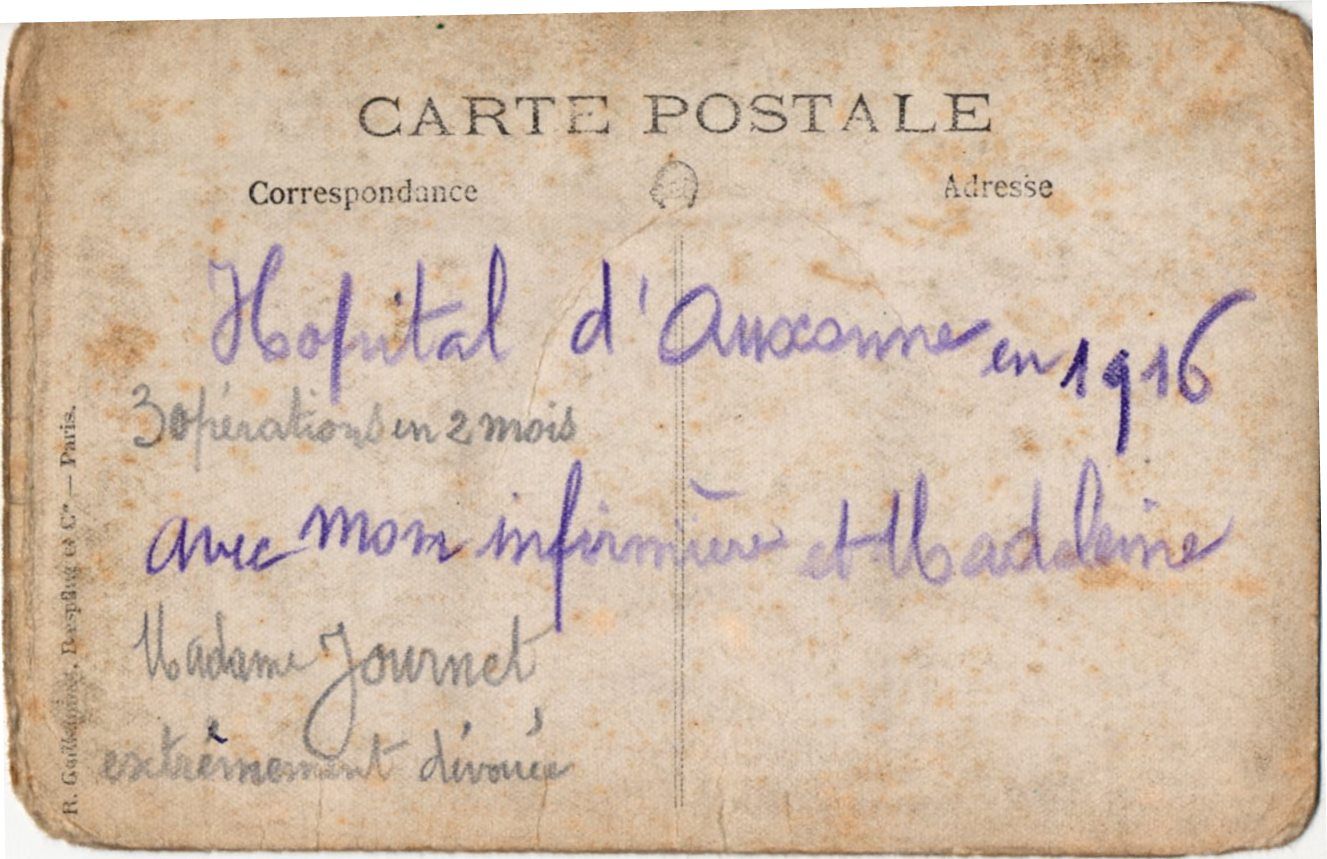 CARTE POSTALE
Correspondance
Adresse
Hopital d'Auxonne en 1916
3 opérations en 2 mois
avec mon infirmière et Madeleine
Madame Journet
extrêmement dévouée
R. Guilleminot, Bœspflug et Cie — Paris.